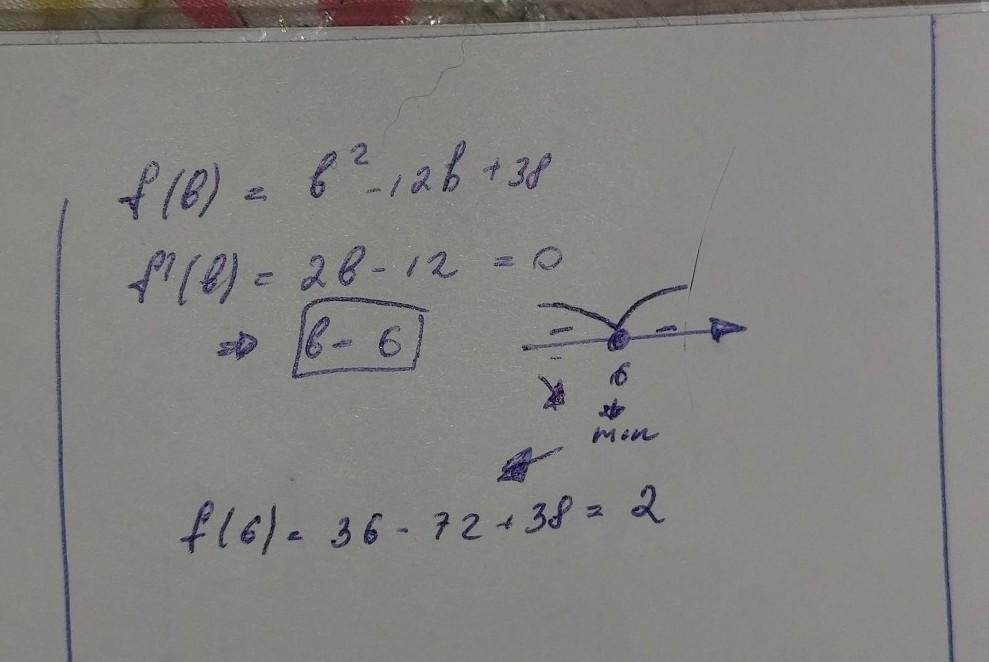 f(b) = b² - 12b + 38
f'(b) = 2b - 12 = 0
⇒ b = 6
- -
6
min
f(6) = 36 - 72 + 38 = 2